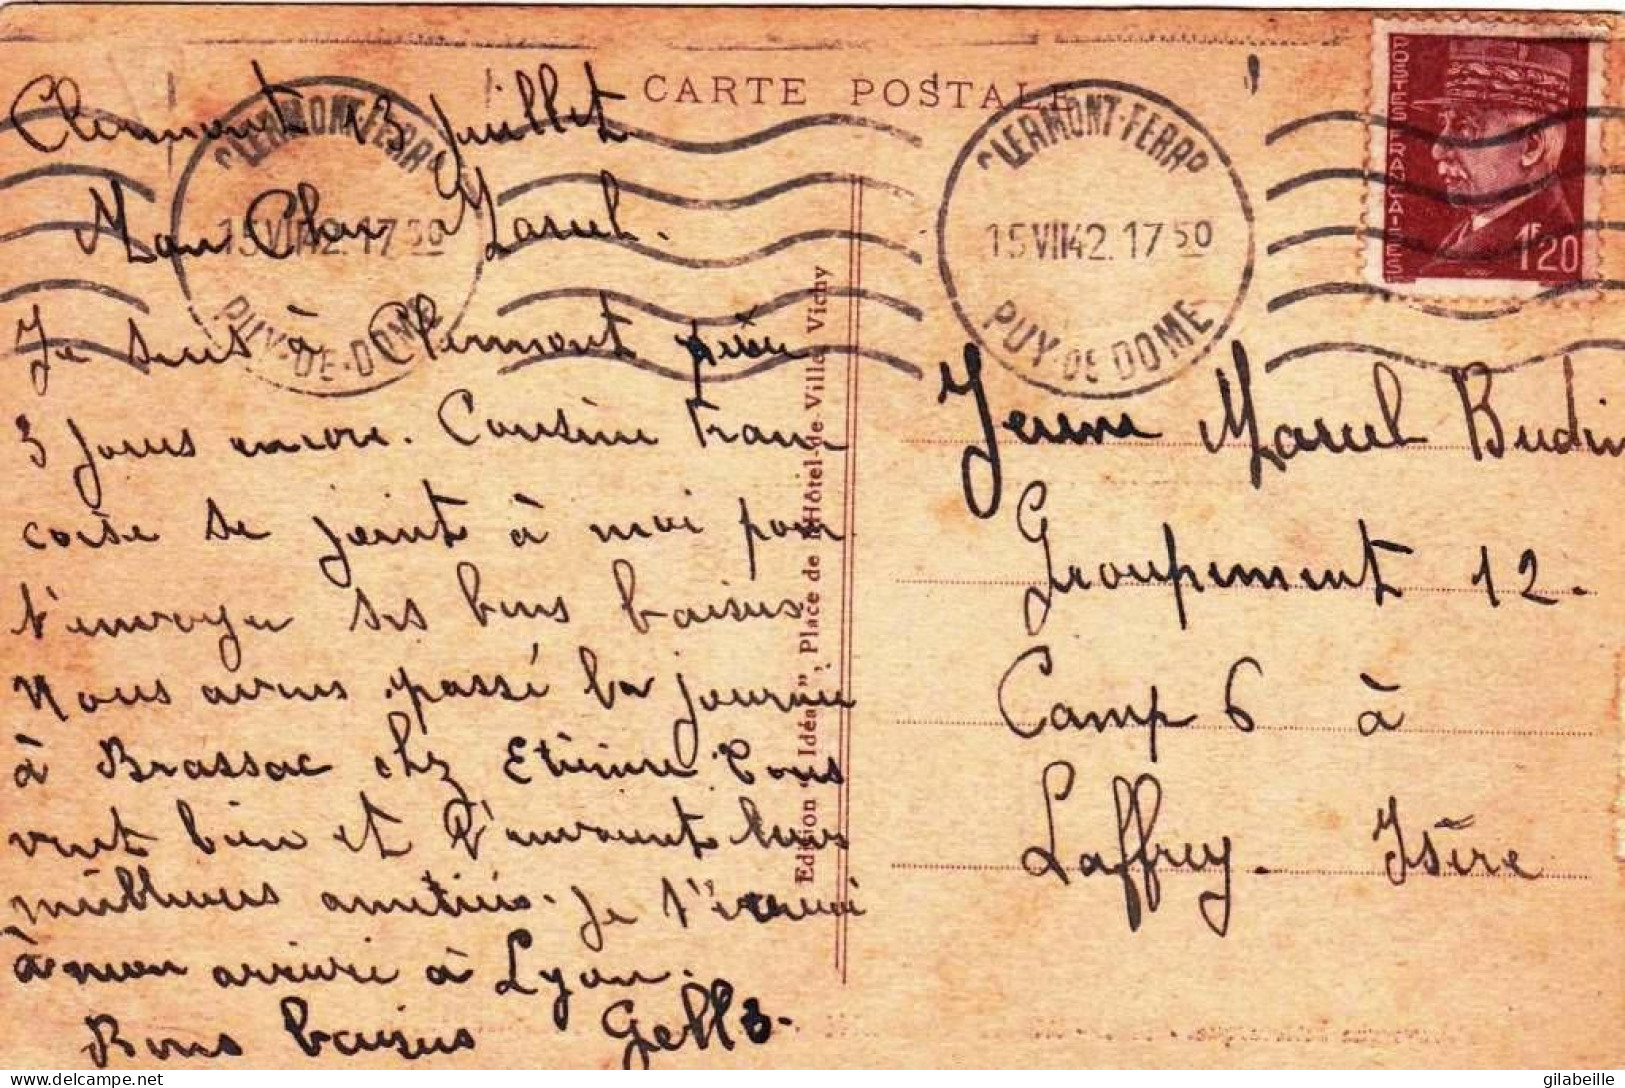 CARTE POSTALE
Clermont 13 Juillet
Mon Cher Marcel.
Je suis à Clermont pour
3 jours encore. Cousine Fran
coise se joint à moi pour
t'envoyer ses bons baisers.
Nous avons passé la journée
à Brassac chez Etienne Tous
vont bien et t'envoient leurs
meilleures amitiés. Je t'écrirai
à mon arrivée à Lyon.
Bons baisers
Edition "Idéal", Place de l'Hôtel-de-Ville Vichy
CLERMONT-FERRD
15 VII 42. 17 50
PUY-DE-DOME
CLERMONT-FERRD
15 VII 42. 17 50
PUY-DE-DOME
POSTES FRANÇAISES
1F20
Jeune Marcel Budin
Groupement 12.
Camp 6 à
Laffrey. Isère
delcampe.net
gilabeille